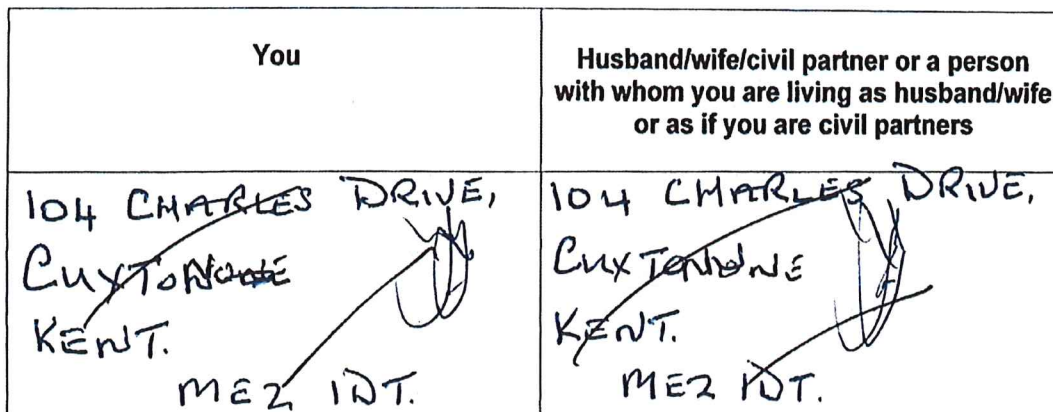 You
Husband/wife/civil partner or a person
with whom you are living as husband/wife
or as if you are civil partners
104 CHARLES DRIVE,
CUXTON NONE
KENT.
ME2 1DT.
104 CHARLES DRIVE,
CUXTON NONE
KENT.
ME2 1DT.